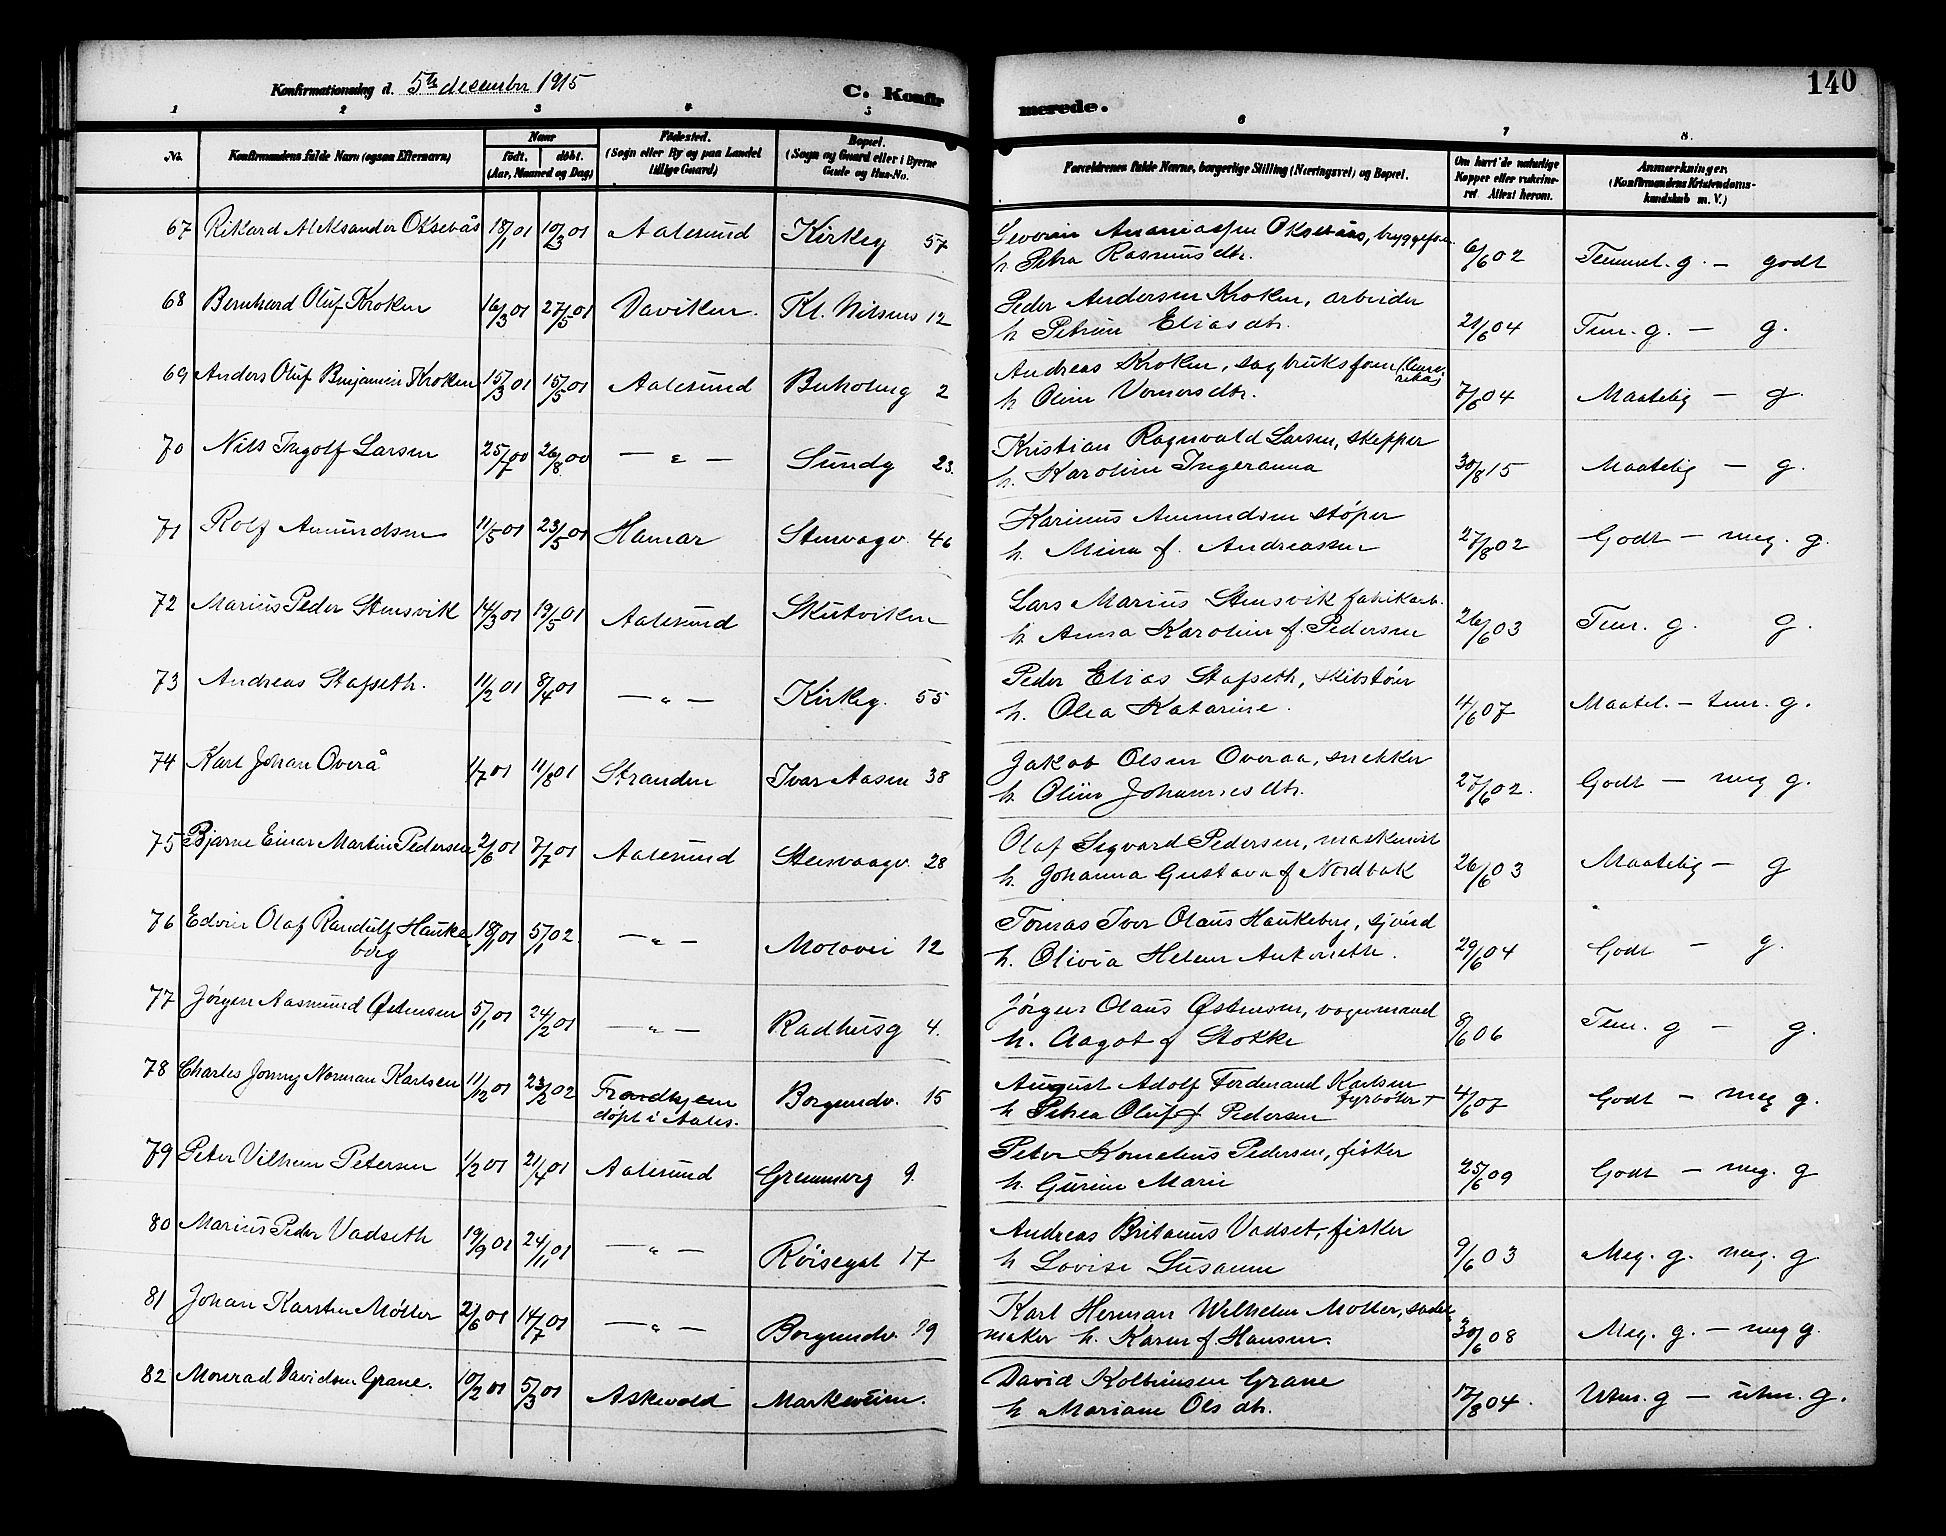 140
Konfirmationsdag d. 5te december 1915 C. Konfir merede.
1 2 3 4 5 6 7 8.
No. Konfirmandens fulde Navn (ogsaa Efternavn) Naar født. døbt. (Aar, Maaned og Dag) Fødested. (Sogn eller By og paa Landet tillige Gaard) Bopæl. (Sogn og Gaard eller i Byerne Gade og Hus-No. Forældrenes fulde Navne, borgerlige Stilling (Næringsvei) og Bopæl. Om havt de naturlige Kopper eller vaccineret Attest herom. Anmærkninger. (Konfirmandens Kristendomskundskab m. V.)
67 Rikard Aleksander Oksebås 18/1 01 10/3 01 Aalesund Kirkeg 57 Severin Ananiassen Oksebås, bryggeform 6/6 02 Temmel. g. — godt
h. Petra Rasmusdtr.
68 Bernhard Oluf Kroken 16/3 01 27/5 01 Daviken. Kl. Nilsens 12 Peder Andersen Kroken, arbeider 21/6 04 Tem. g. — g.
h. Petrine Eliasdtr.
69 Anders Oluf Benjamin Kroken 15/3 01 15/5 01 Aalesund Buholmg 2 Andreas Kroken, sagbruksform (Amerika) 7/6 04 Maatelig — g.
h. Oline Vernersdtr.
70 Nils Ingolf Larsen 25/7 00 26/8 00 — " — Sundg 23. Kristian Ragnvald Larsen, skipper 30/8 15 Maatelig — g.
h. Karoline Ingeranna
71 Rolf Amundsen 11/5 01 23/5 01 Hamar Stensvagv. 46 Karinus Amundsen støper 27/8 02 Godt — meg. g.
h. Mina f. Andreassen
72 Marius Peder Stensvik 14/3 01 19/5 01 Aalesund Skutviken Lars Marius Stensvik fabrikarb. 26/6 03 Tem. g. g.
h. Anna Karoline f. Pedersen
73 Andreas Stafseth. 11/2 01 8/4 01 — " — Kirkeg. 55 Peder Elias Stafseth, skibstøm 4/6 07 Maatel. — tem. g.
h. Olea Katarine.
74 Karl Johan Overå 1/7 01 11/8 01 Stranden Ivar Aasen 38 Jakob Olsen Overaa, snekker 27/6 02. Godt — meg g.
h. Oline Johannesdtr.
75 Bjarne Einar Martin Pedersen 2/6 01 7/7 01 Aalesund Stensvaagv. 28 Olaf Sigvard Pedersen, maskinist 26/6 03 Maatelig — g
h. Johanna Gustava f Nordbak
76 Edvin Olaf Randulf Haukeberg 18/11 01 5/1 02. — " — Molovei 12 Tomas Iver Olaus Haukeberg, sjømd 29/6 04 Godt — g.
h. Olivia Helene Antonette.
77 Jörgen Aasmund Østensen 5/1 01 24/2 01 — " — Radhusg 4. Jörgen Olaus Østensen, vognmand 8/6 06 Tem. g — g.
h. Aagot f Stokke
78 Charles Jonny Norman Karlsen 11/12 01 23/2 02 Trondhjem døpt i Aales. Borgundv. 15 August Adolf Ferdinand Karlsen fyrbøter + 4/6 07 Godt — meg g.
h Petrea Oluf f Pedersen
79 Peter Vilhelm Petersen 1/2 01 21/4 01 Aalesund Gremmerg 9. Peter Kornelius Pedersen, fisker 25/6 09 Godt — meg. g
h. Gurine Marie
80 Marius Peder Vadseth 19/9 01 24/11 01 — " — Röisegat 17 Andreas Britanus Vadset, fisker 9/6 03 Meg. g. meg. g
h Lovise Susanne
81 Johan Karsten Møller 2/6 01 14/7 01 — " — Borgundv. 19 Karl Herman Wilhelm Møller, sadelmaker h. Karen f. Hansen. 30/6 08 Meg. g. — meg g.
82 Monrad Davidsen Grane. 10/2 01 5/3 01 Askevold Markveien. David Kolbensen Grane 17/8 04. Utm. g — utm. g.
h Mariane Olsdtr.